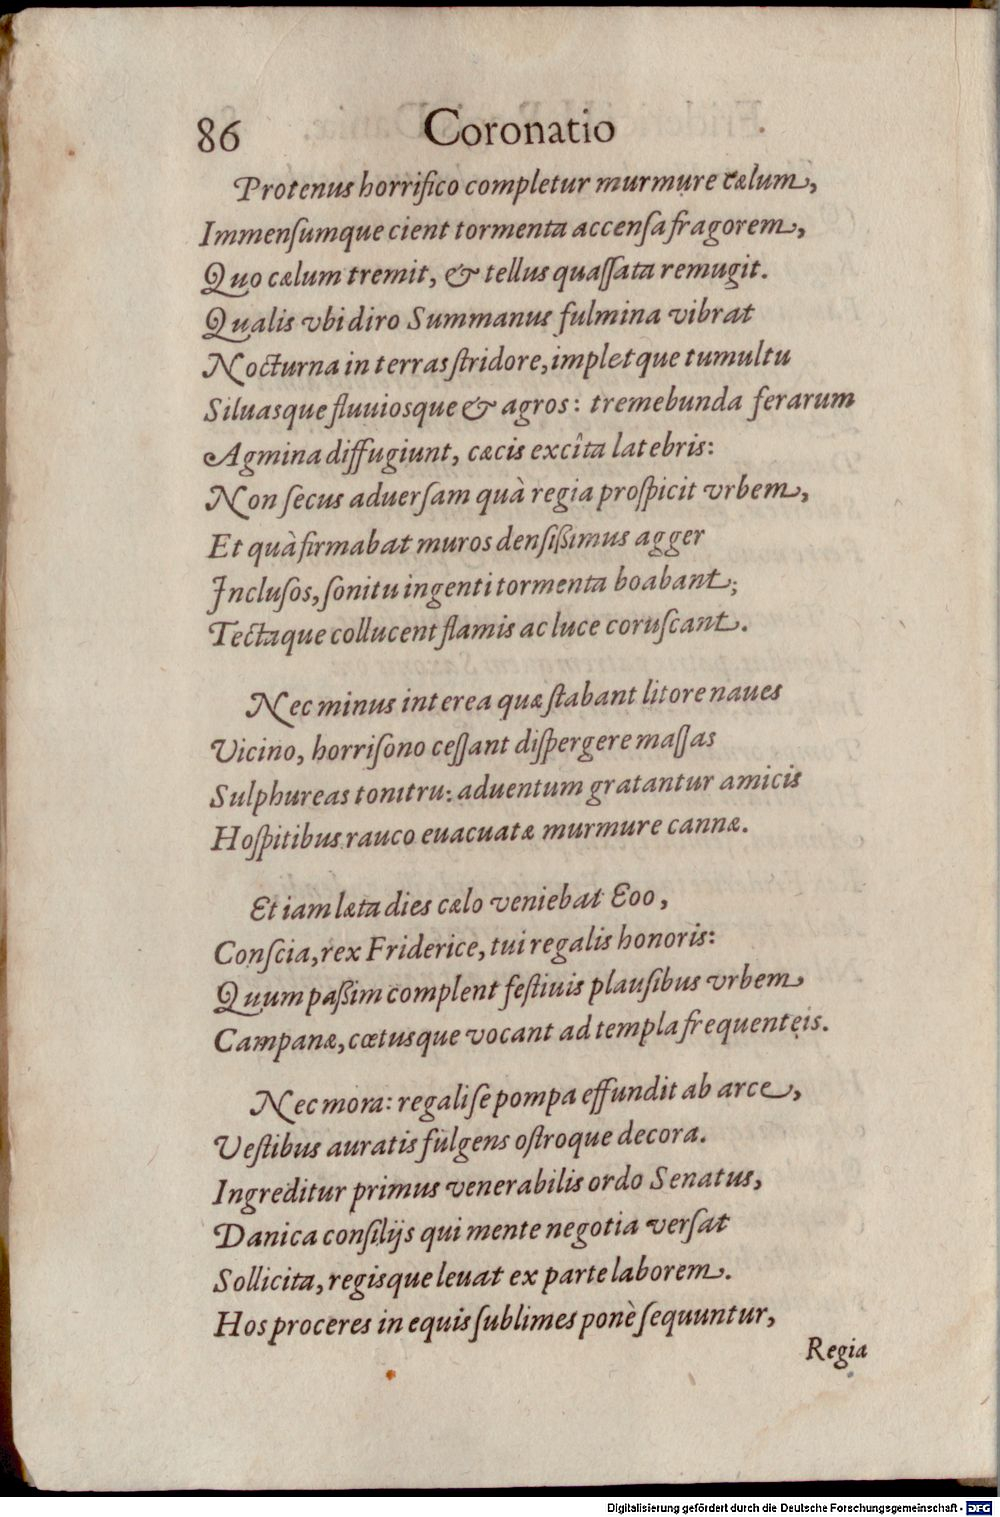 86 Coronatio
Protenus horrifico completur murmure cælum,
Immenſumque cient tormenta accenſa fragorem,
Quo cælum tremit, & tellus quaſſata remugit.
Qualis vbi diro Summanus fulmina vibrat
Nocturna in terras ſtridore, impletque tumultu
Siluasque fluuiosque & agros: tremebunda ferarum
Agmina diffugiunt, cæcis excîta latebris:
Non ſecus aduerſam quà regia proſpicit vrbem,
Et quà firmabat muros denſißimus agger
Incluſos, ſonitu ingenti tormenta boabant;
Tectaque collucent flamis ac luce coruſcant.
Nec minus interea quæ ſtabant litore naues
Vicino, horriſono ceſſant diſpergere maſſas
Sulphureas tonitru: aduentum gratantur amicis
Hoſpitibus rauco euacuatæ murmure cannæ.
Et iam læta dies cælo veniebat Eoo,
Conſcia, rex Friderice, tui regalis honoris:
Quum paßim complent feſtiuis plauſibus vrbem
Campanæ, cœtusque vocant ad templa frequenteis.
Nec mora: regali ſe pompa effundit ab arce,
Veſtibus auratis fulgens oſtroque decora.
Ingreditur primus venerabilis ordo Senatus,
Danica conſilijs qui mente negotia verſat
Sollicita, regisque leuat ex parte laborem.
Hos proceres in equis ſublimes ponè ſequuntur,
Regia
Digitalisierung gefördert durch die Deutsche Forschungsgemeinschaft - DFG